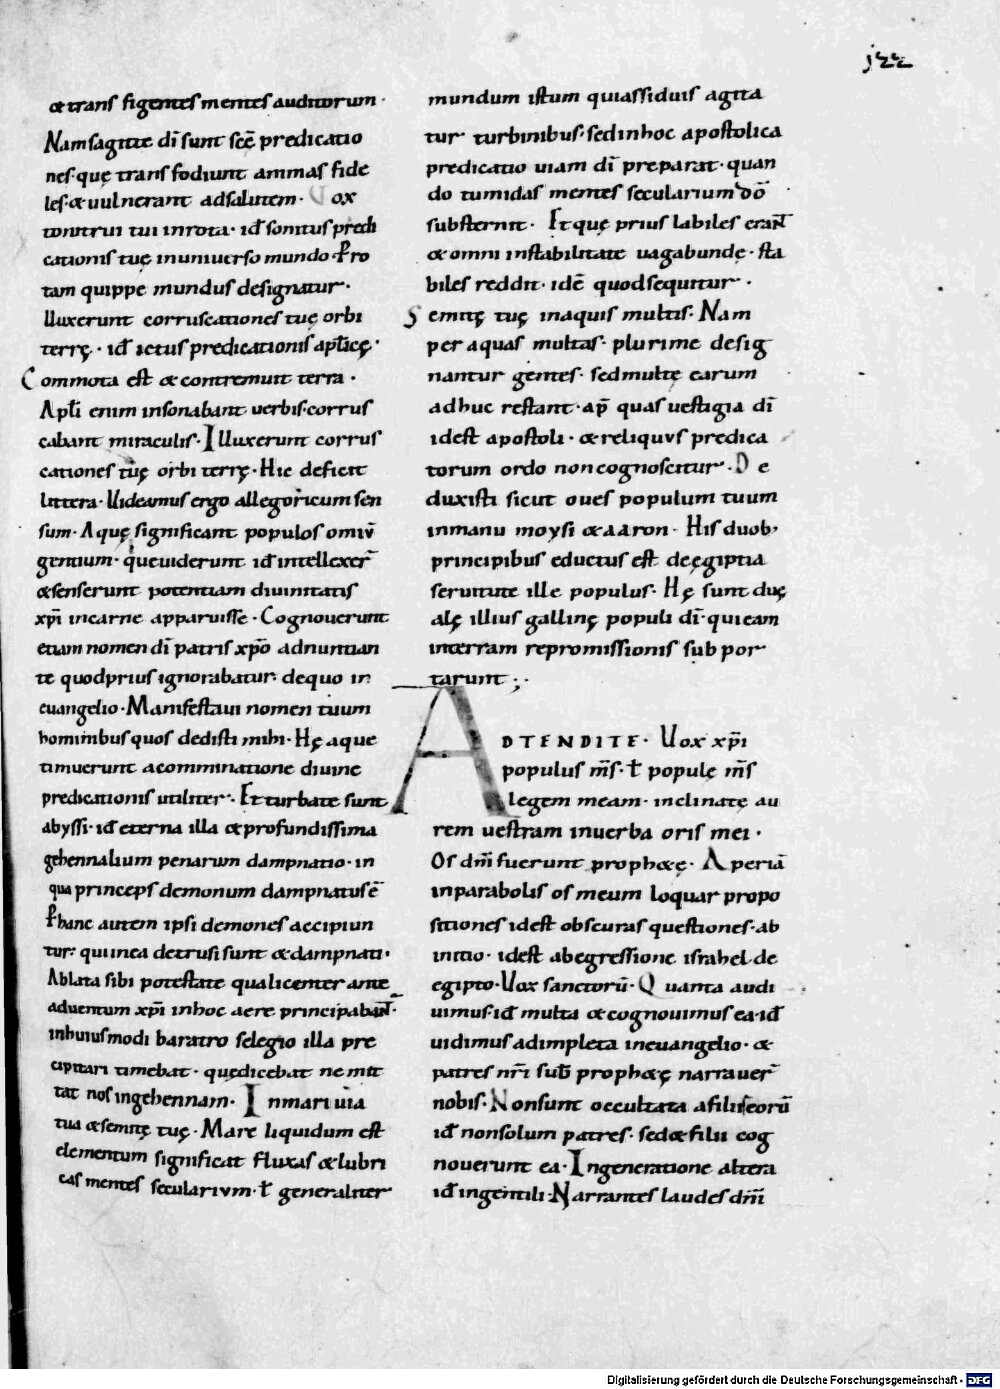 j22
& trans figentes mentes auditorum·
Nam sagitte dī sunt scē predicatio
nes· quę trans fodiunt animas fide
les· & uulnerant adsalutem· Vox
tonitrui tui inrota· id̄ sonitus predi
cationis tuę inuniuerso mundo· P̄ro
tam quippe mundus designatur·
Illuxerunt corruscationes tuę orbi
terrę· id̄ ictus predicationis apl̄icę·
Commota est & contremuit terra·
Apl̄i enim insonabant uerbis· corrus
cabant miraculis· Illuxerunt corrus
cationes tuę orbi terrę· Hic deficit
littera· Uideamus ergo allegoricum sen
sum· Aquę significant populos omiū
gentium· queuiderunt id̄ intellexer̄
& senserunt potentiam diuinitatis
xp̄i incarne apparuisse· Cognouerunt
etiam nomen dī patris xp̄o adnuntian
te quodprius ignorabatur· dequo in
euangelio· Manifestaui nomen tuum
hominibus quos dedisti mihi· Hę aque
timuerunt acomminatione diuine
predicationis utiliter· Et turbate sunt
abyssi· id̄ eterna illa & profundissima
gehennalium penarum dampnatio· in
qua princeps demonum dampnatus ē
P̄ hanc autem ipsi demones accipiun
tur· quiinea detrusi sunt & dampnati·
Ablata sibi potestate qualicenter ante
aduentum xp̄i inhoc aere principaban̄t·
inhuiusmodi baratro selegio illa pre
cipitari timebat· quędicebat ne mit
tat nos ingehennam· In mari uia
tua & semitę tuę· Mare liquidum est
elementum significat fluxas & lubri
cas mentes secularium· t̄ generaliter
mundum istum quiassiduis agita
tur turbinibus· sedinhoc apostolica
predicatio uiam dī preparat· quan
do tumidas mentes secularium dō
substernit· Et quę prius labiles eran̄t
& omni instabilitate uagabundę· sta
biles reddit· idē quodsequitur·
Semitę tuę inaquis multis· Nam
per aquas multas· plurime desig
nantur gentes· sed multę earum
adhuc restant· ap̄ quas uestigia dī
idest apostoli· & reliquus predica
torum ordo noncognoscitur· De
duxisti sicut oues populum tuum
inmanu moysi & aaron· His duob;
principibus eductus est deęgiptia
seruitute ille populus· Hę sunt duę
alę illius gallinę populi dī· qui eam
interram repromissionis sub por
tarunt;·
ADTENDITE· Uox xp̄i
populus m̄s· t̄ populę m̄s
legem meam· inclinatę au
rem uestram inuerba oris mei·
Os dn̄i fuerunt proph&ę· Aperiā
inparabolis os meum loquar propo
sitiones idest obscuras questiones· ab
initio· idest abegressione israhel de
egipto· Uox sanctorū· Quanta audi
uimus· id̄ multa & cognouimus ea· id̄
uidimus adimpleta ineuangelio· &
patres nr̄i sub̄ proph&ę narrauer̄
nobis· Nonsunt occultata afiliiseorū
id̄ nonsolum patres· sed& filii cog
nouerunt ea· Ingeneratione altera
id̄ ingentili· Narrantes laudes dn̄i
Digitalisierung gefördert durch die Deutsche Forschungsgemeinschaft - DFG